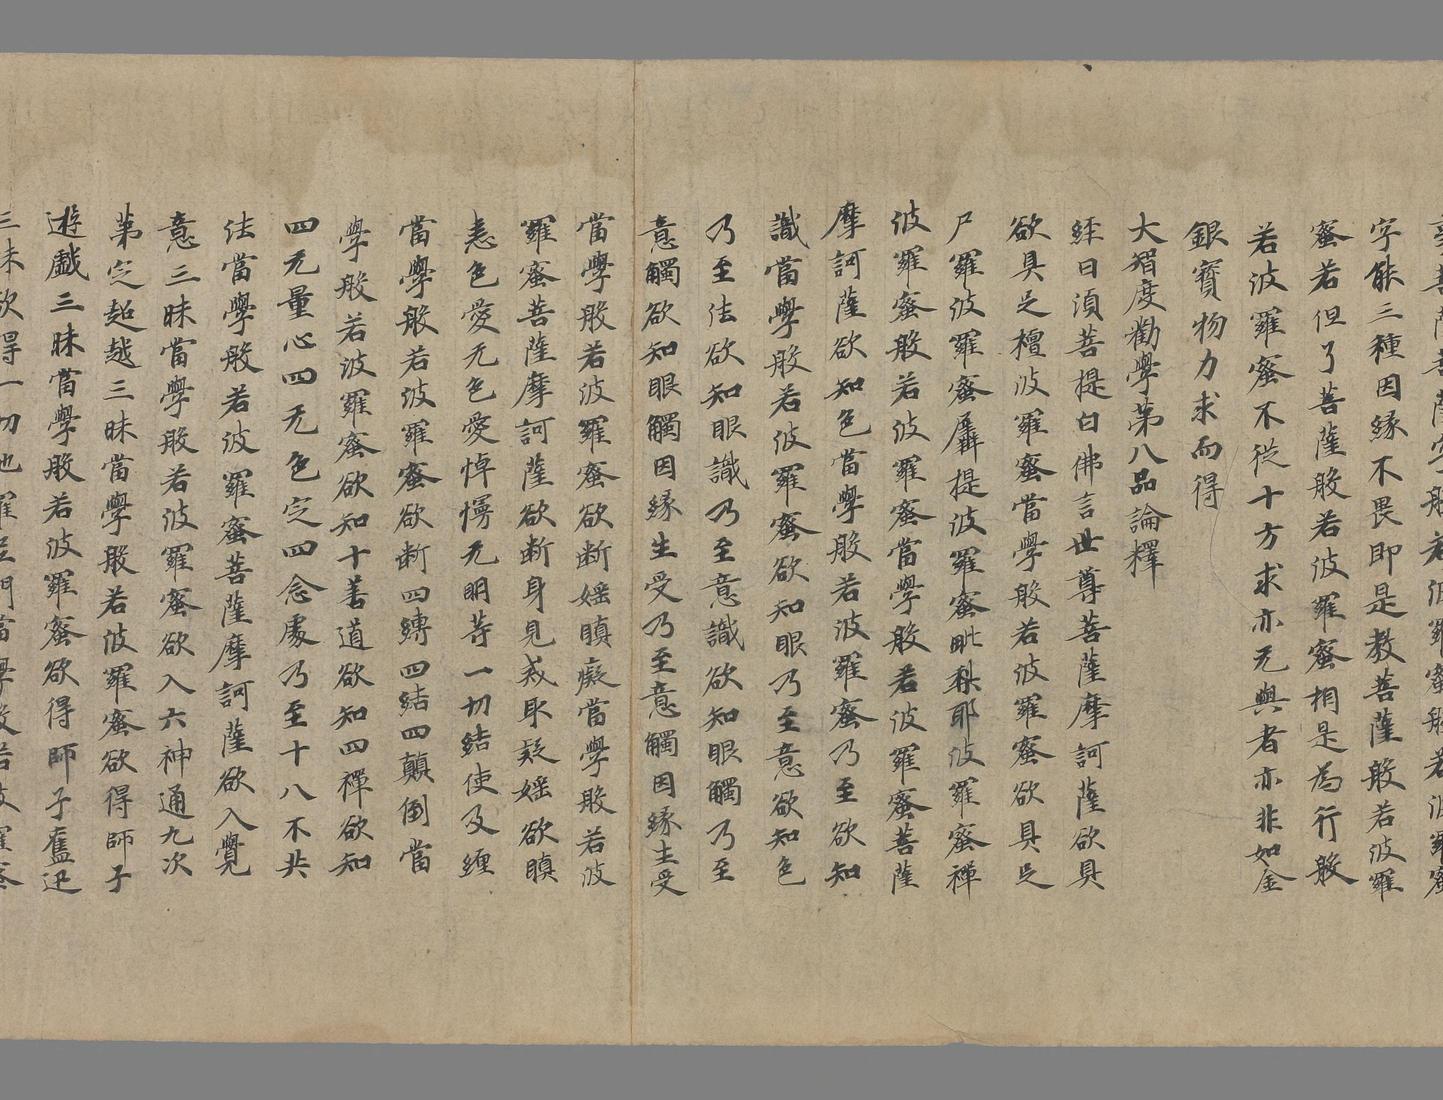 菩薩菩薩字般若波羅蜜般若波羅蜜
字能三種因緣不畏即是教菩薩般若波羅
蜜若但了菩薩般若波羅蜜相是為行般
若波羅蜜不從十方求亦无與者亦非如金
銀寶物力求而得
大智度勸學第八品論釋
經曰須菩提白佛言世尊菩薩摩訶薩欲具
欲具足檀波羅蜜當學般若波羅蜜欲具足
尸羅波羅蜜羼提波羅蜜毗梨耶波羅蜜禪
波羅蜜般若波羅蜜當學般若波羅蜜菩薩
摩訶薩欲知色當學般若波羅蜜乃至欲知
識當學般若波羅蜜欲知眼乃至意欲知色
乃至法欲知眼識乃至意識欲知眼觸乃至
意觸欲知眼觸因緣生受乃至意觸因緣生受
當學般若波羅蜜欲斷婬瞋癡當學般若波
羅蜜菩薩摩訶薩欲斷身見戒取疑婬欲瞋
恚色愛无色愛悼慢无明等一切結使及纏
當學般若波羅蜜欲斷四縛四結四顛倒當
學般若波羅蜜欲知十善道欲知四禪欲知
四无量心四无色定四念處乃至十八不共
法當學般若波羅蜜菩薩摩訶薩欲入覺
意三昧當學般若波羅蜜欲入六神通九次
第定超越三昧當學般若波羅蜜欲得師子
遊戲三昧當學般若波羅蜜欲得師子奮迅
三昧欲得一切陁羅尼門當學般若波羅蜜